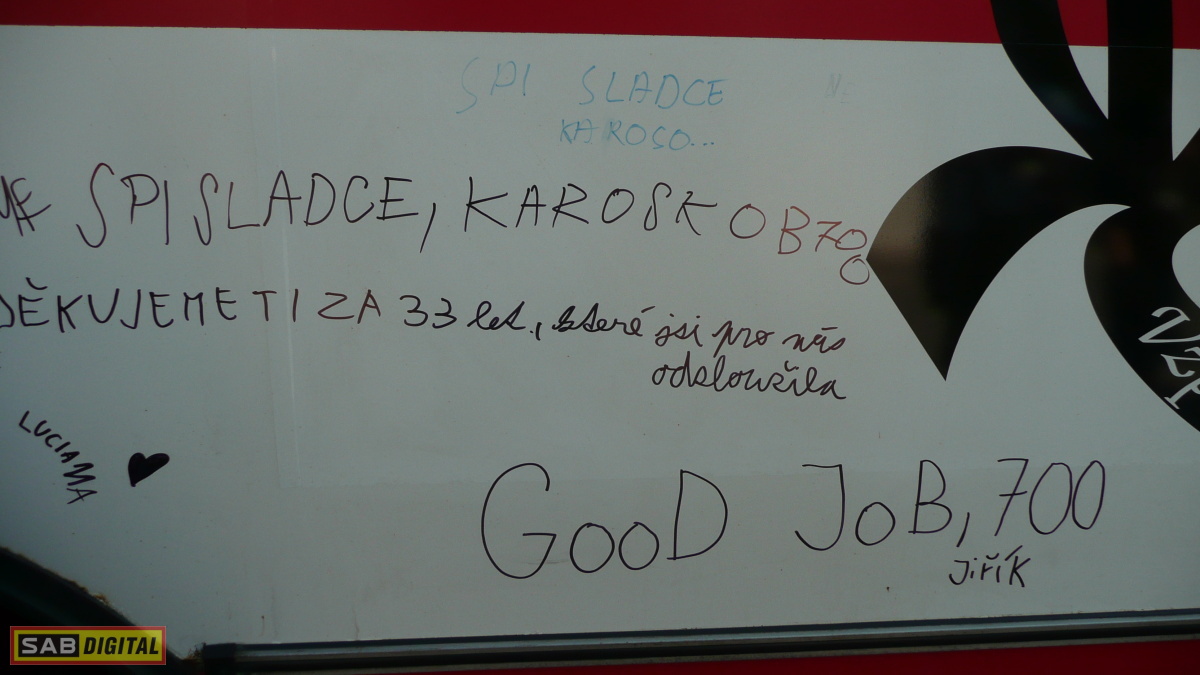 SPI SLADCE
KAROSO...
SPI SLADCE, KAROSKO B700
DĚKUJEME TI ZA 33 let, které jsi pro nás
odsloužila
LUCIAMA
GOOD JOB, 700
JIŘÍK
SAB DIGITAL